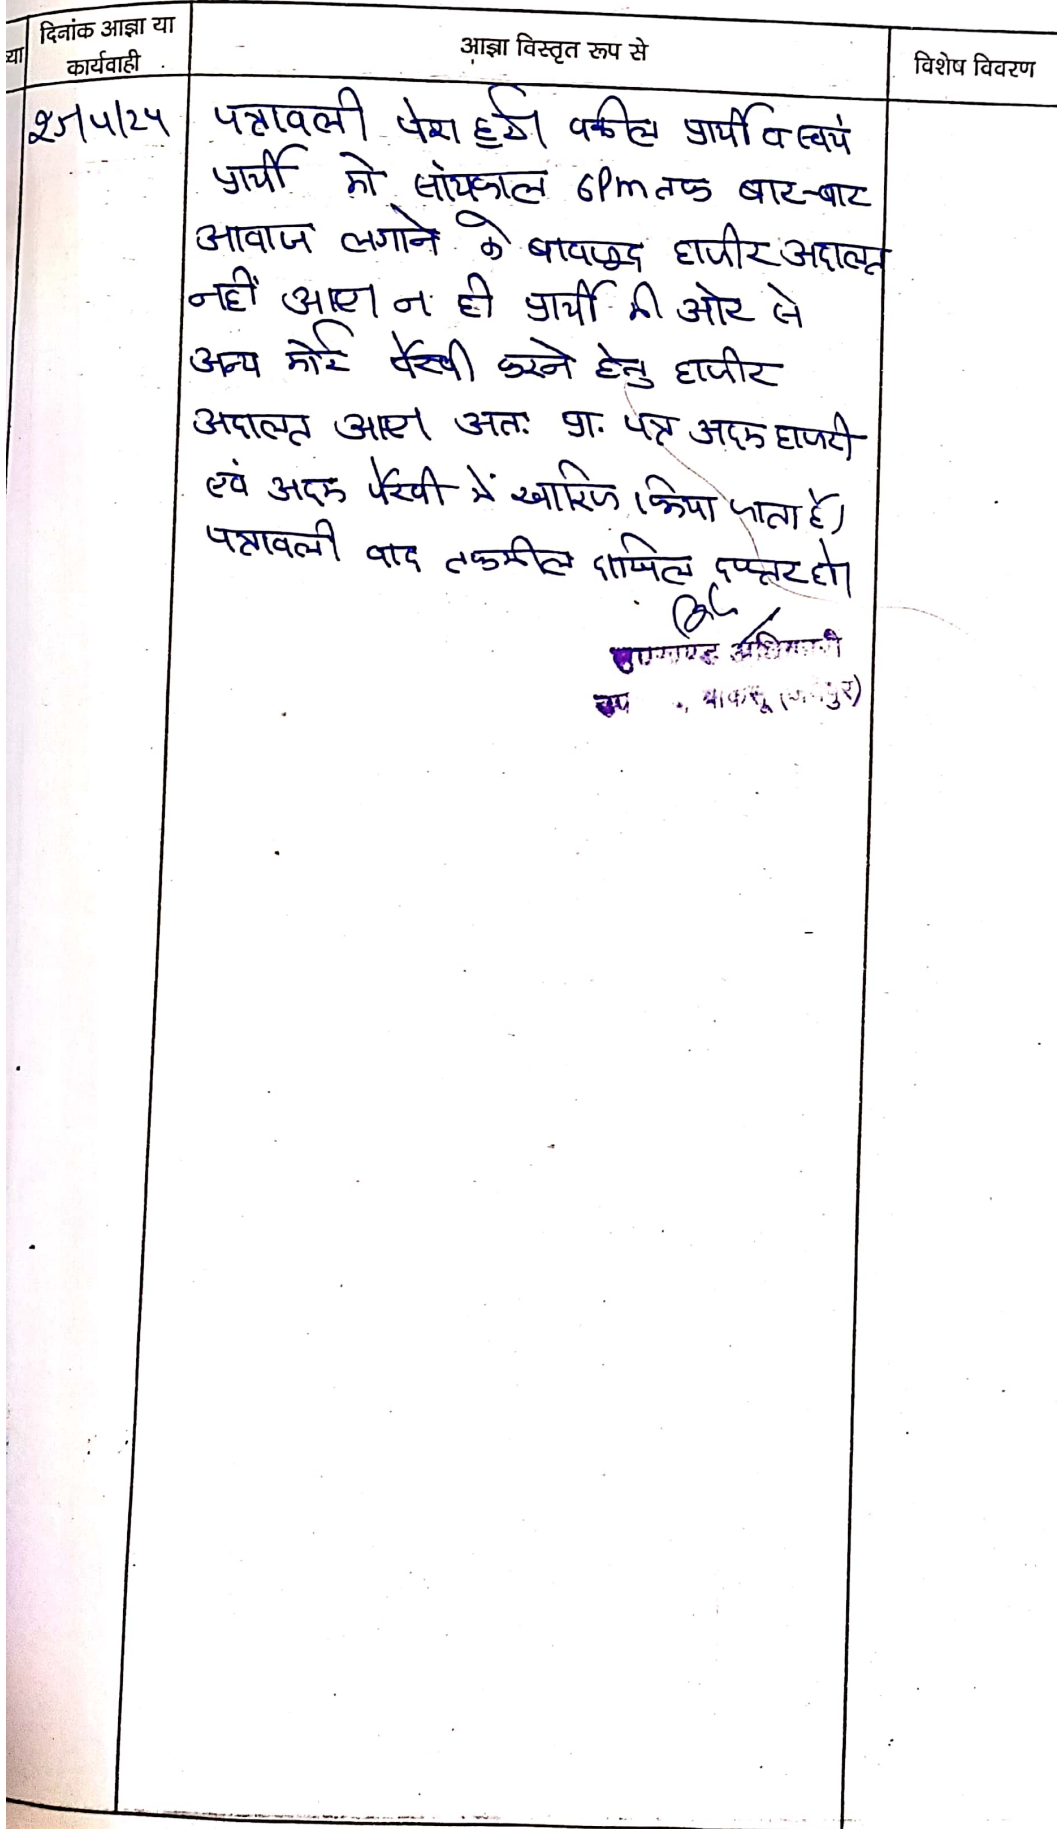 या
दिनांक आज्ञा या
कार्यवाही
आज्ञा विस्तृत रूप से
विशेष विवरण
पत्रावली पेश हुई। वकील प्रार्थी व स्वयं
प्रार्थी को सांयकाल 6Pm तक बार-बार
आवाज लगाने के बावजूद हाजीर अदालत
नहीं आए। न ही प्रार्थी की ओर से
अन्य कोई पैरवी करने हेतु हाजीर
अदालत आए। अतः प्रा. पत्र अदम हाजरी
एवं अदम पैरवी में खारिज किया जाता है।
पत्रावली बाद तकमील दाखिल दफ्तर हो।
अधिकारी
चाकसू (जयपुर)